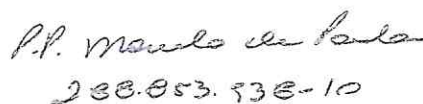 P.P. Marcelo de Paula
288.853.938-10